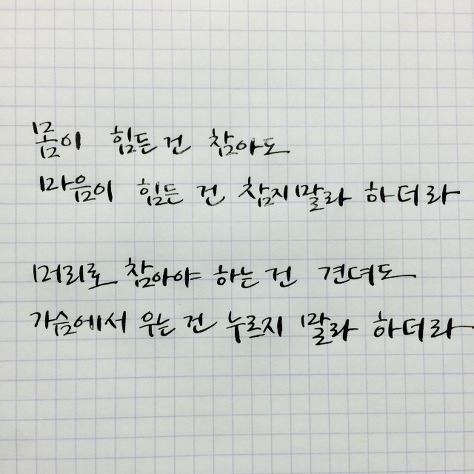 몸이 힘든 건 참아도
마음이 힘든 건 참지말라 하더라
머리로 참아야 하는 건 견뎌도
가슴에서 우는 건 누르지 말라 하더라